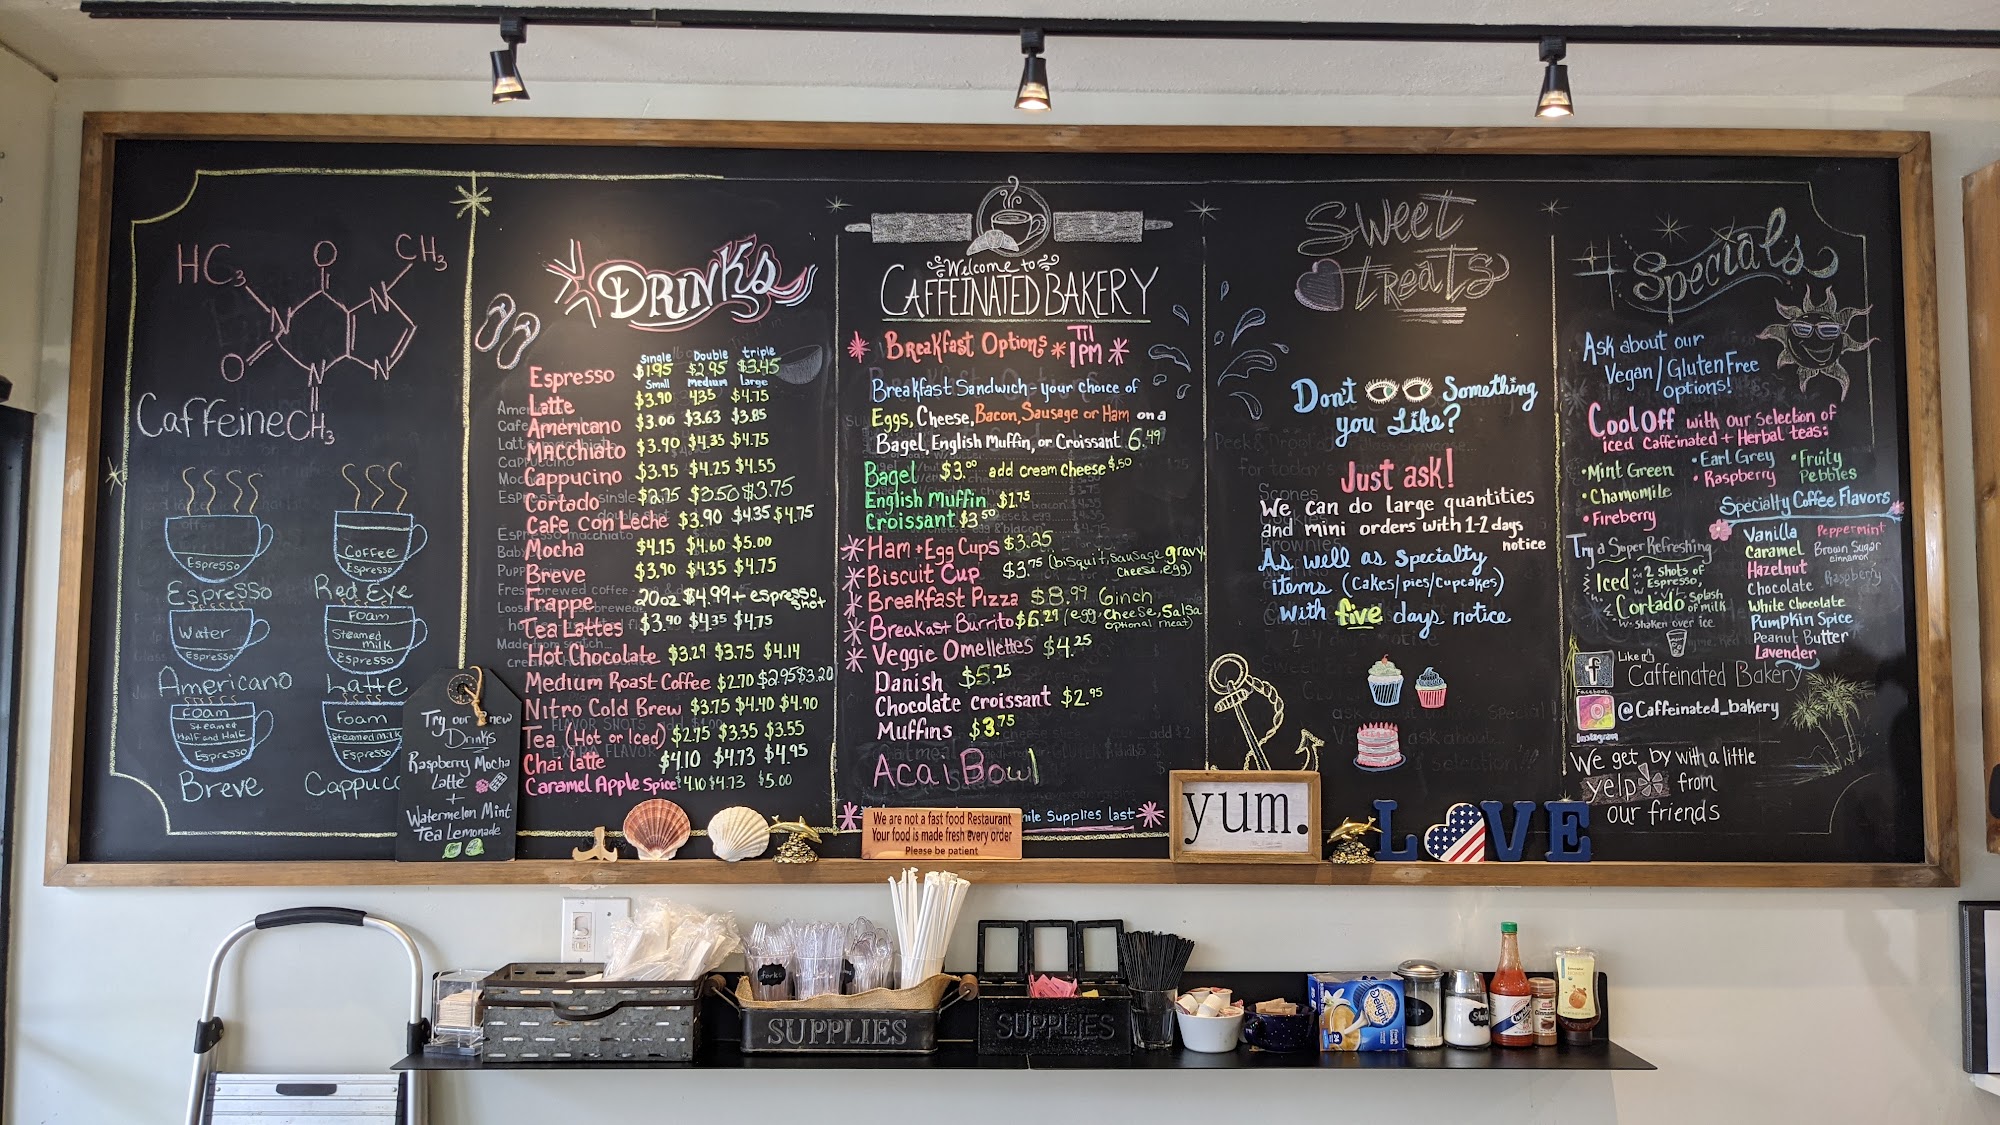 HC3
O
CH3
N
N
O
N
N
Caffeine
CH3
Espresso
Espresso
Coffee
Espresso
Red Eye
Water
Espresso
Americano
Foam
Steamed
milk
Espresso
Latte
Foam
Steamed
Half and Half
Espresso
Breve
Foam
Steamed milk
Espresso
Cappuc
Try our new
Drinks
Raspberry Mocha
Latte
+
Watermelon Mint
Tea Lemonade
Drinks
Single Double triple
Espresso $1.95 $2.95 $3.45
Small Medium Large
Latte $3.90 4.35 $4.75
Américano $3.00 $3.63 $3.85
Macchiato $3.90 $4.35 $4.75
Cappucino $3.95 $4.25 $4.55
Cortado $2.75 $3.50 $3.75
Cafe con Leche $3.90 $4.35 $4.75
Mocha $4.15 $4.60 $5.00
Breve $3.90 $4.35 $4.75
Frappe 20oz $4.99 + espresso shot
Tea Lattes $3.90 $4.35 $4.75
Hot Chocolate $3.29 $3.75 $4.14
Medium Roast Coffee $2.70 $2.95 $3.20
Nitro Cold Brew $3.75 $4.40 $4.90
Tea (Hot or Iced) $2.75 $3.35 $3.55
Chai latte $4.10 $4.73 $4.95
Caramel Apple Spice $4.10 $4.73 $5.00
Welcome to
Caffeinated Bakery
Breakfast Options Til 1PM
Breakfast Sandwich - your choice of
Eggs, Cheese, Bacon, Sausage or Ham on a
Bagel, English Muffin, or Croissant 6.49
Bagel $3.00 add cream cheese $.50
English Muffin $1.75
Croissant $3.50
Ham + Egg Cups $3.25
Biscuit Cup $3.75 (bisquit, sausage gravy, cheese, egg)
Breakfast Pizza $8.99 6inch
Breakast Burrito $6.29 (egg, cheese, salsa
optional meat)
Veggie Omellettes $4.25
Danish $5.25
Chocolate croissant $2.95
Muffins $3.75
Acai Bowl
hile Supplies last
We are not a fast food Restaurant
Your food is made fresh every order
Please be patient
Sweet
Treats
Don't Something
you Like?
Just ask!
We can do large quantities
and mini orders with 1-2 days
notice
As well as Specialty
items (cakes/pies/cupcakes)
with five days notice
yum.
L VE
Specials
Ask about our
Vegan/Gluten Free
options!
Cool Off with our selection of
iced Caffeinated + Herbal teas:
• Mint Green
• Chamomile
• Fireberry
• Earl Grey
• Raspberry
• Fruity
Pebbles
Try a Super Refreshing
Iced w 2 shots of
Espresso,
Cortado Splash
of milk
w shaken over ice
Specialty Coffee Flavors
Vanilla
Caramel
Hazelnut
Chocolate
White Chocolate
Pumpkin Spice
Peanut Butter
Lavender
Peppermint
Brown Sugar
cinnamon
Raspberry
f
Facebook
Like it
Caffeinated Bakery
Instagram
@Caffeinated_bakery
We get by with a little
yelp from
our friends
forks
SUPPLIES
SUPPLIES
Delight